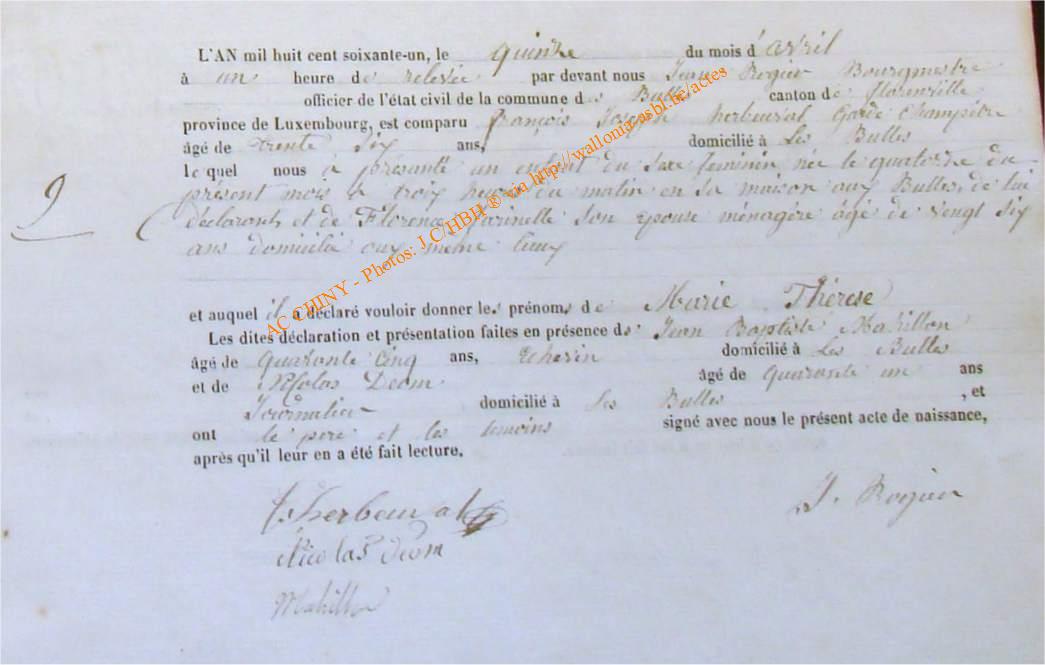 L'AN mil huit cent soixante-un, le quinze du mois d'avril
à un heure de relevée par devant nous Jean Rogier Bourgmestre
officier de l'état civil de la commune des Bulles canton de florenville
province de Luxembourg, est comparu françois Joseph herbeuval Garde Champêtre
âgé de trente six ans, domicilié à Les Bulles
lequel nous à présenté un enfant du sexe féminin née le quatorze du
présent mois à troix heures du matin en sa maison aux Bulles, de lui
9
déclarant, et de Florence son epouse ménagère âgé de vengt six
ans domicilié aux même lieux
et auquel il a déclaré vouloir donner les prénoms de Marie Thérèse
Les dites déclaration et présentation faites en présence de Jean Baptiste Mahillon
âgé de quarante cinq ans, domicilié à Les Bulles
et de Nicolas Deom âgé de quarante un ans
Journalier domicilié à Les Bulles, et
ont le pere et les temoins signé avec nous le présent acte de naissance,
après qu'il leur en a été fait lecture.
herbeuval J. Rogier
Nicolas Deom
Mahillon
AC CHINY - Photos: J.C/HBH ® via http://wallonia-asbl.be/actes